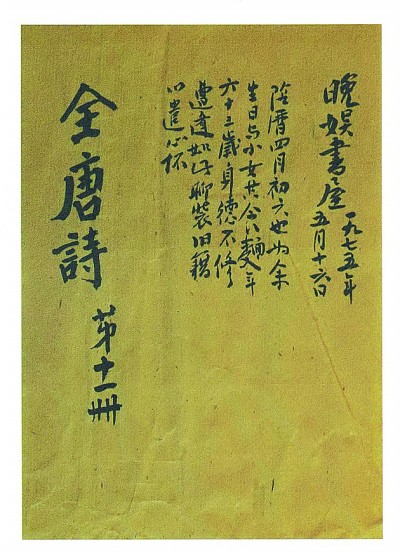 晚娱書屋 一九七五年
五月十六日
陰曆四月初六也为余
生日与小女共食麵年
六十三歲身德不修
遭逢如此聊裝旧籍
以遣心怀
全唐詩 苐十一冊